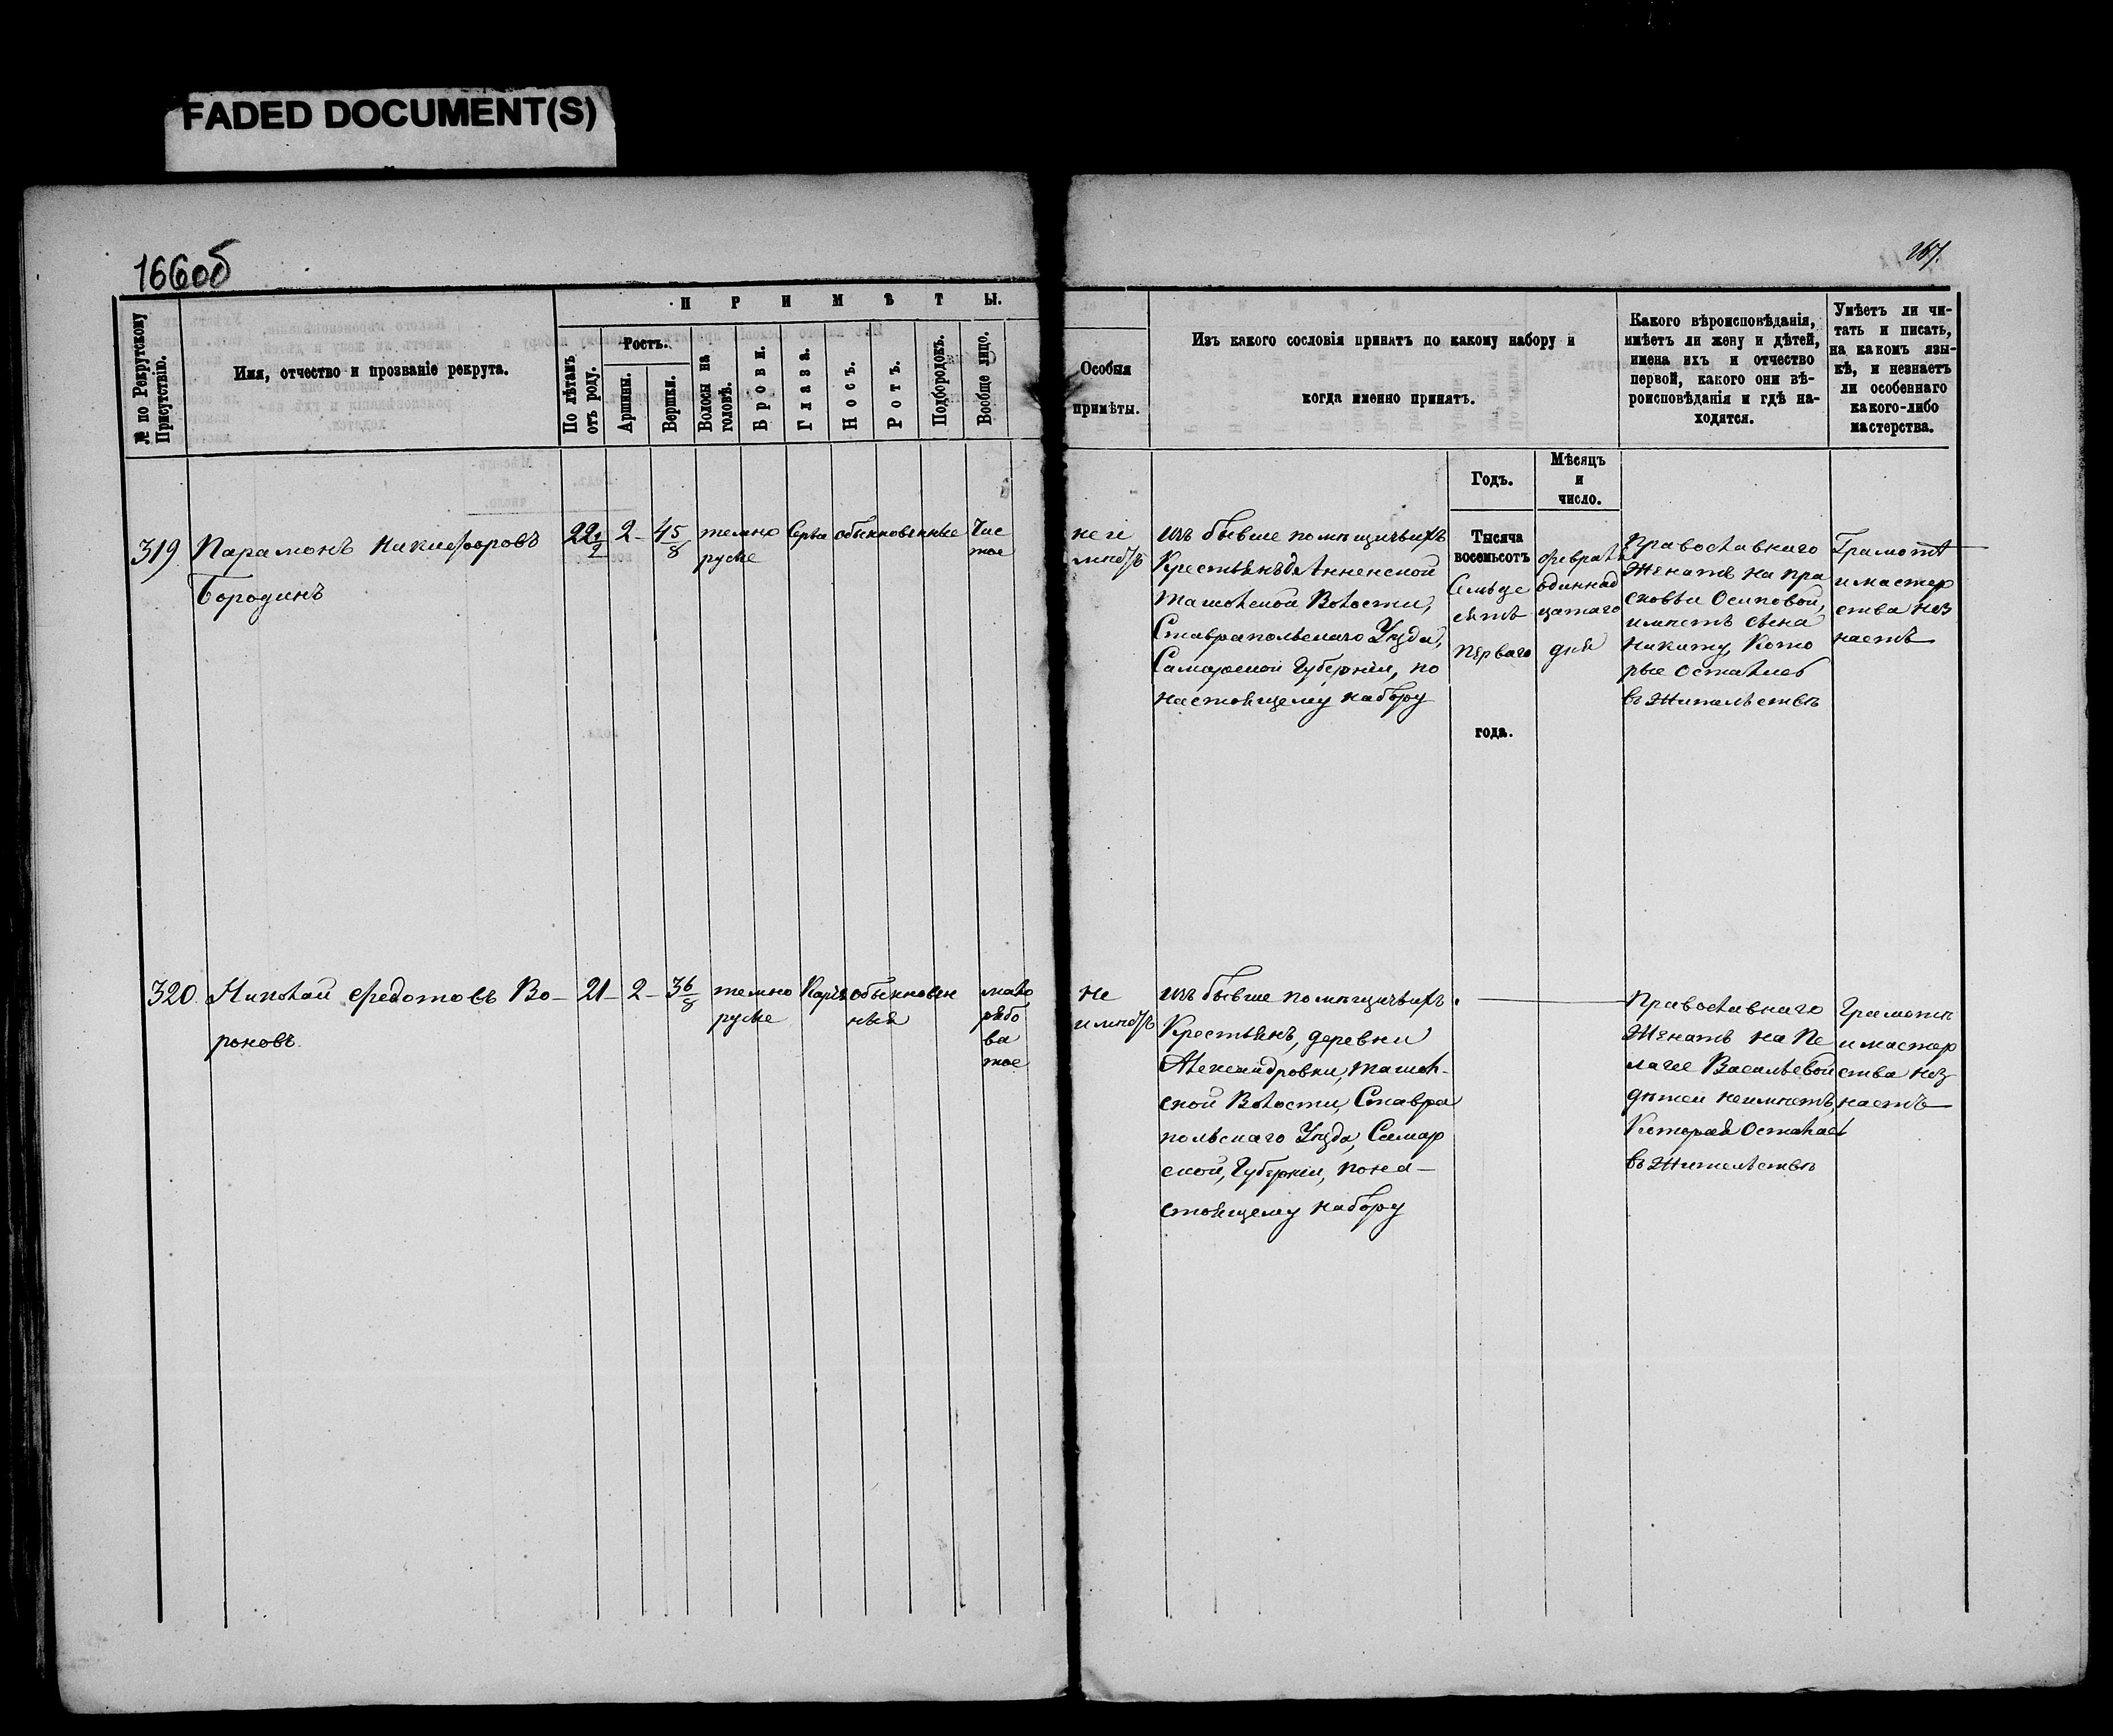 FADED DOCUMENT(S)
166об
167.
П Р И М Ѣ Т Ы.
№ по Рекрутскому Присутствію.
Имя, отчество и прозваніе рекрута.
По лѣтамъ отъ роду.
Ростъ.
Аршины.
Вершки.
Волосы на головѣ.
Брови.
Глаза.
Носъ.
Ротъ.
Подбородокъ.
Вообще лицо.
Особыя
примѣты.
Изъ какого сословія принятъ по какому набору и
когда именно принятъ.
Годъ.
Мѣсяцъ
и
число.
Какого вѣроисповѣданія,
имѣетъ ли жену и дѣтей,
имена ихъ и отчество
первой, какого они вѣ-
роисповѣданія и гдѣ на-
ходятся.
Умѣетъ ли чи-
тать и писать,
на какомъ язы-
кѣ, и незнаетъ
ли особеннаго
какого-либо
мастерства.
319
Парамонъ Никифоровъ
Бородинъ
22 1/2
2
4 5/8
темно
русые
Серые
обыкновенные
Чис
тое
не
имѣетъ
изъ бывше помѣщичьихъ
Крестьянъ д. Анненской
Ташолской Волости,
Ставрапольскаго Уѣзда,
Самарской Губерніи, по
настоящему набору
Тысяча
восемьсотъ
Семьде
сятъ
Перваго
года.
Февраля
одиннад
цатаго
дня
Православнаго
Женатъ на Пра
сковьи Осиповой,
имѣетъ сына
Никиту, Кото
рые остались
въ Жительствѣ
Грамотѣ
и мастер
ства нез
наетъ
320.
Николай Федотовъ Во-
роновъ.
21
2
3 6/8
темно
русые
Каріе
обыкновен
ныя
мало
рябо
ва
тое
не
имѣетъ
изъ бывше помѣщичьихъ
Крестьянъ, деревни
Александровки, Ташол-
ской Волости, Ставра
польскаго Уѣзда, Самар
ской, Губерніи, по на-
стоящему набору
Православнаго
Женатъ на Пе
лагее Васильевой
дѣтей неимѣетъ,
Которая осталась
въ Жительствѣ
Грамотѣ
и мастер
ства нез
наетъ